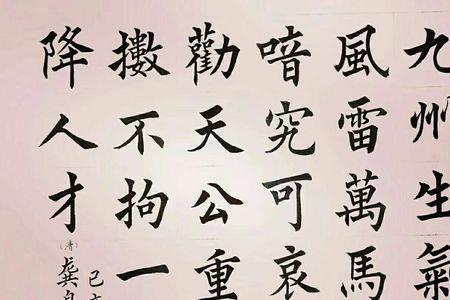 九州生氣
風雷萬馬
喑究可哀
勸天公重
擻不拘一
降人才
(清)龔自
己